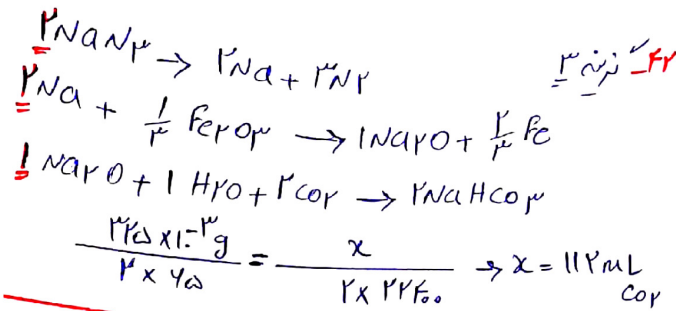 ۴۲_ گزینه ۳
۲NaN۳ → ۲Na + ۳N۲
۲Na + ۱/۳ Fe۲O۳ → ۱Na۲O + ۲/۳ Fe
۱ Na۲O + ۱ H۲O + ۲CO۲ → ۲NaHCO۳
۳۲۵ × ۱۰⁻³g / ۲ × ۶۵ = x / ۲ × ۲۲۴۰۰ → x = ۱۱۲mL CO۲